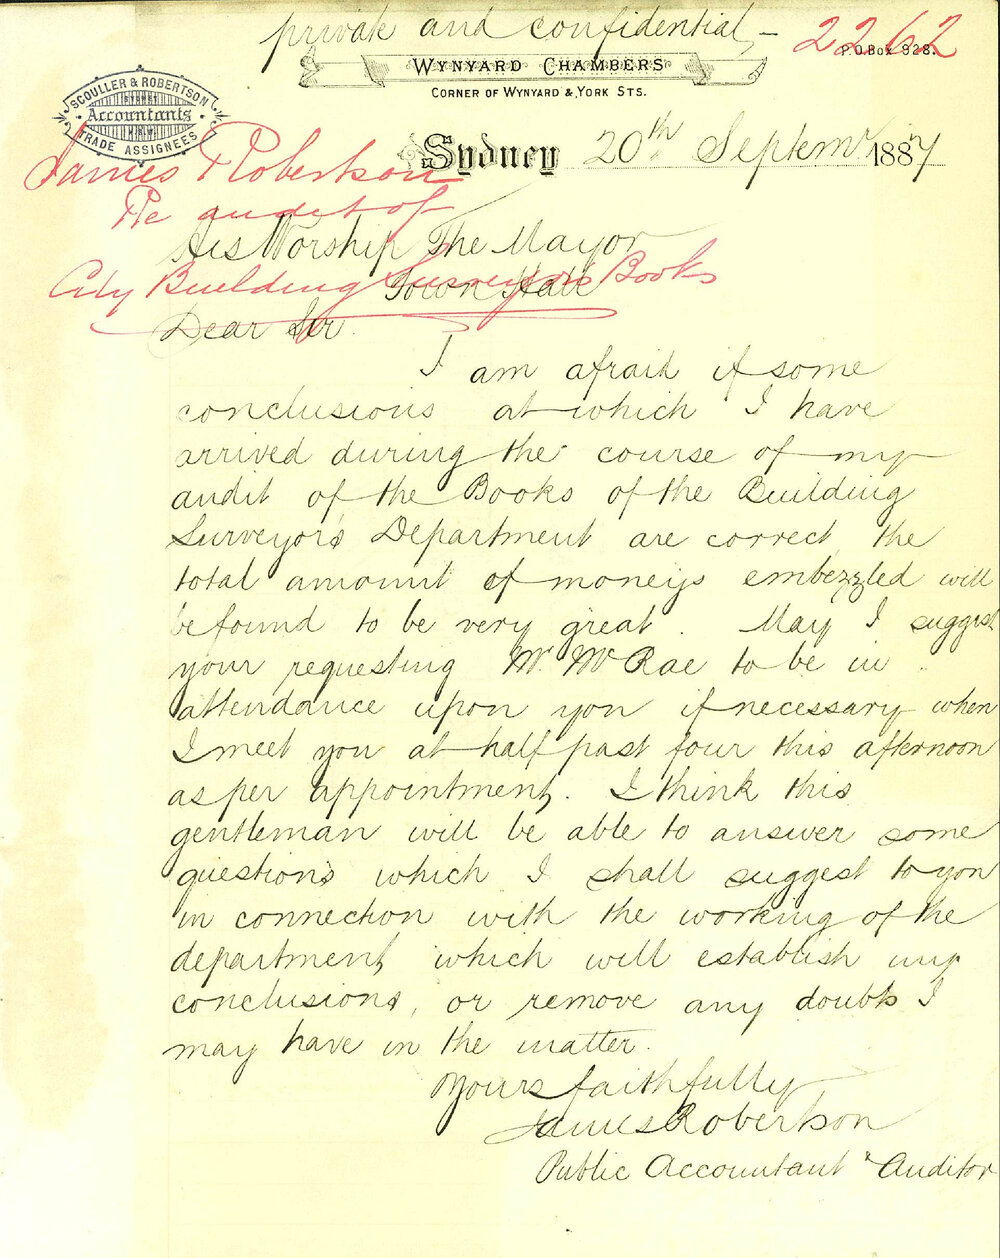 private and confidential –
2262
P.O. Box 928.
WYNYARD CHAMBERS
CORNER OF WYNYARD & YORK STS.
SCOULLER & ROBERTSON
SYDNEY
Accountants
N.S.W.
TRADE ASSIGNEES
Sydney 20th Septemr 1887
James Robertson
Re audit of
City Building Surveyors Books
His Worship The Mayor
Town Hall
Dear Sir.
I am afraid if some
conclusions at which I have
arrived during the course of my
audit of the Books of the Building
Surveyor's Department are correct, the
total amount of moneys embezzled will
be found to be very great. May I suggest
your requesting Mr. McRae to be in
attendance upon you if necessary when
I meet you at half past four this afternoon
as per appointment. I think this
gentleman will be able to answer some
questions which I shall suggest to you
in connection with the working of the
department, which will establish my
conclusions, or remove any doubts I
may have in the matter.
Yours faithfully
James Robertson
Public Accountant & Auditor